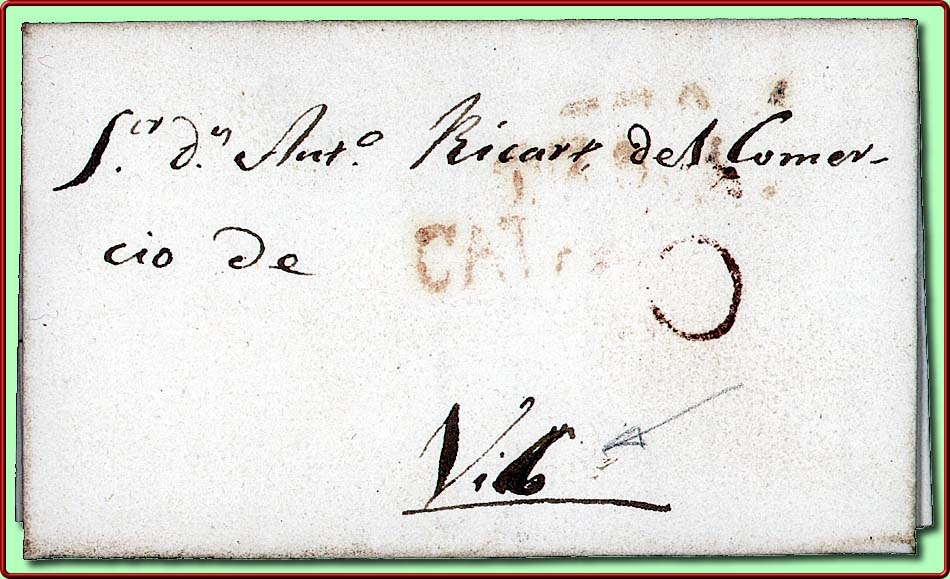 S.or d.n Ant.o Ricart, del Comer-
cio de
CAT
Vic